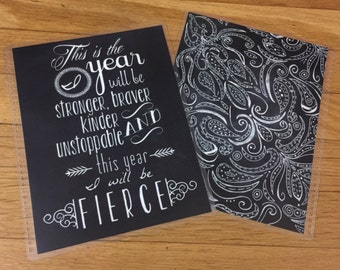 This is the
year
will be
stronger, braver
kinder AND
unstoppable
this year
I will be
FIERCE